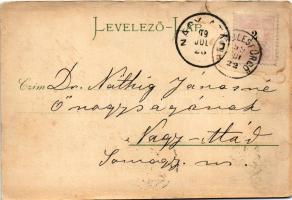 LEVELEZŐ-LAP.
NAGY
79
JUL
23
Czim Dr. Náthig Jánosné
Ő nagyságának
Nagy-Atád
Somogy m.